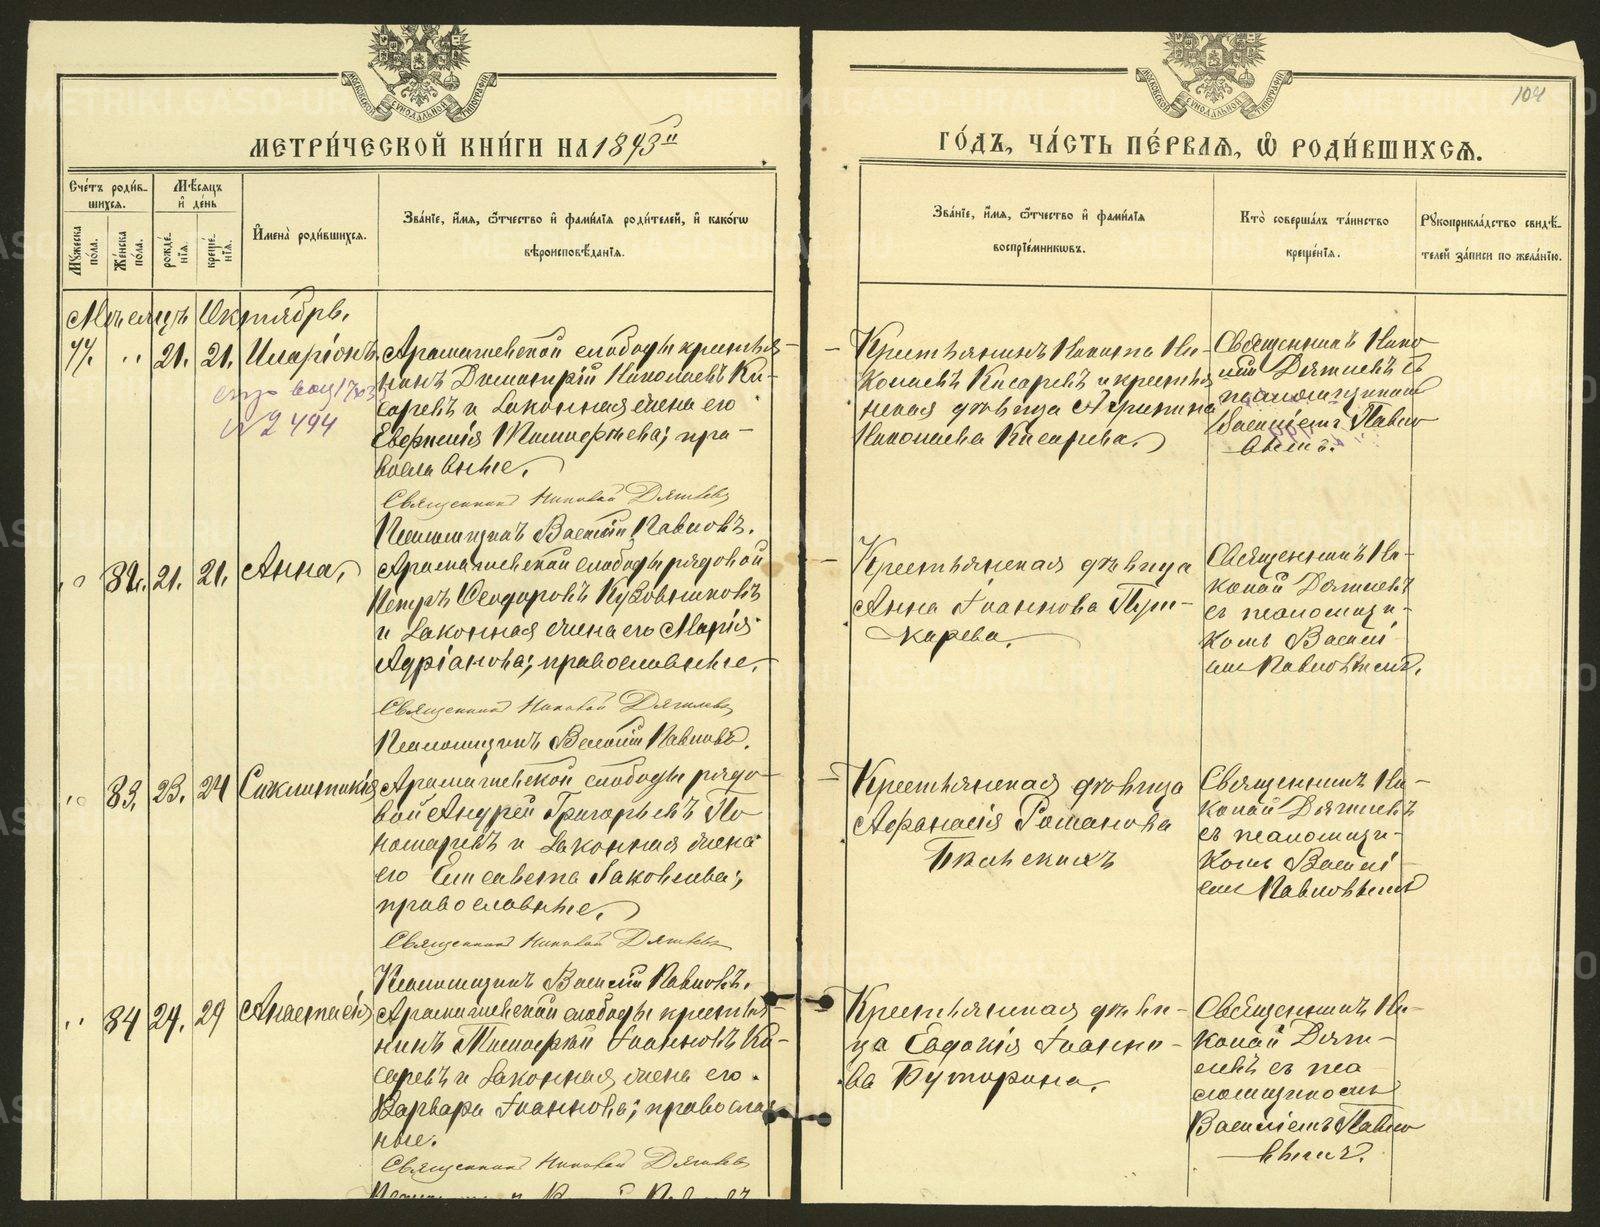 МЕТРИ́ЧЕСКОЙ КНИ́ГИ НА 1893й
ГО́ДЪ, ЧА́СТЬ ПЕ́РВАѦ, Ѡ҆ РОДИ́ВШИХСѦ.
104
Сче́тъ роди́в-
шихсѧ.
Мꙋ́жеска
по́ла.
Же́нска
по́ла.
Мѣ́сѧцъ
и҆ де́нь
рожде́-
нїѧ.
креще́-
нїѧ.
И҆мена̀ роди́вшихсѧ.
Зва́нїе, и҆́мѧ, ѻ҆́тчество и҆ фами́лїѧ роди́телей, и҆ како́гѡ
вѣроисповѣ́данїѧ.
Зва́нїе, и҆́мѧ, ѻ҆́тчество и҆ фами́лїѧ
воспрїе́мникѡвъ.
Кто̀ соверша́лъ та́инство
креще́нїѧ.
Рꙋкоприкла́дство свидѣ́-
телей за́писи по жела́нїю.
Мѣсяцъ Октябрь.
77. " 21. 21. Иларіонъ.
N 2494
Арамашевской слободы крестья-
нинъ Димитрій Николаевъ Ки-
саревъ и законная жена его
Евфимія Тимофѣева; пра-
вославные.
Священникъ Николай Дягилевъ
Псаломщикъ Василій Павловъ.
Крестьянинъ Никита Ни-
колаевъ Кисаревъ и крестья
нская дѣвица
Николаева Кисарева.
Священникъ Нико
лай Дягилевъ съ
псаломщикомъ
Василіемъ Павло
вымъ.
" 82. 21. 21. Анна.
Арамашевской слободы рядовой
Петръ Ѳеодоровъ Кузовниковъ
и законная жена его Марія
Адріанова; православные.
Священникъ Николай Дягилевъ
Псаломщикъ Василій Павловъ.
Крестьянская дѣвица
Анна Іоаннова Пуш-
карева.
Священникъ Ни-
колай Дягилевъ
съ псаломщи-
комъ Василі
емъ Павловымъ.
" 83. 23. 24 Сигклитикія
Арамашевской слободы рядо-
вой Андрей Григорьевъ По
номаревъ и законная жена
его Елисавета Іаковлева;
православные.
Священникъ Николай Дягилевъ
Псаломщикъ Василій Павловъ.
Крестьянская дѣвица
Афанасія Романова
Священникъ Ни-
колай Дягилевъ
съ псаломщи-
комъ Василі-
емъ Павловымъ
" 84 24. 29 Анастасія
Арамашевской слободы крестья-
нинъ Тимофей Іоанновъ Ки-
саревъ и законная жена его
Варвара Іоаннова; православ
ные.
Священникъ Николай Дягилевъ
Псаломщикъ Василій Павловъ
Крестьянская дѣви-
ца Евдокія Іоанно-
ва Бутарина.
Священникъ Ни-
колай Дяги-
левъ съ пса
ломщикомъ
Василіемъ Павло
вымъ.